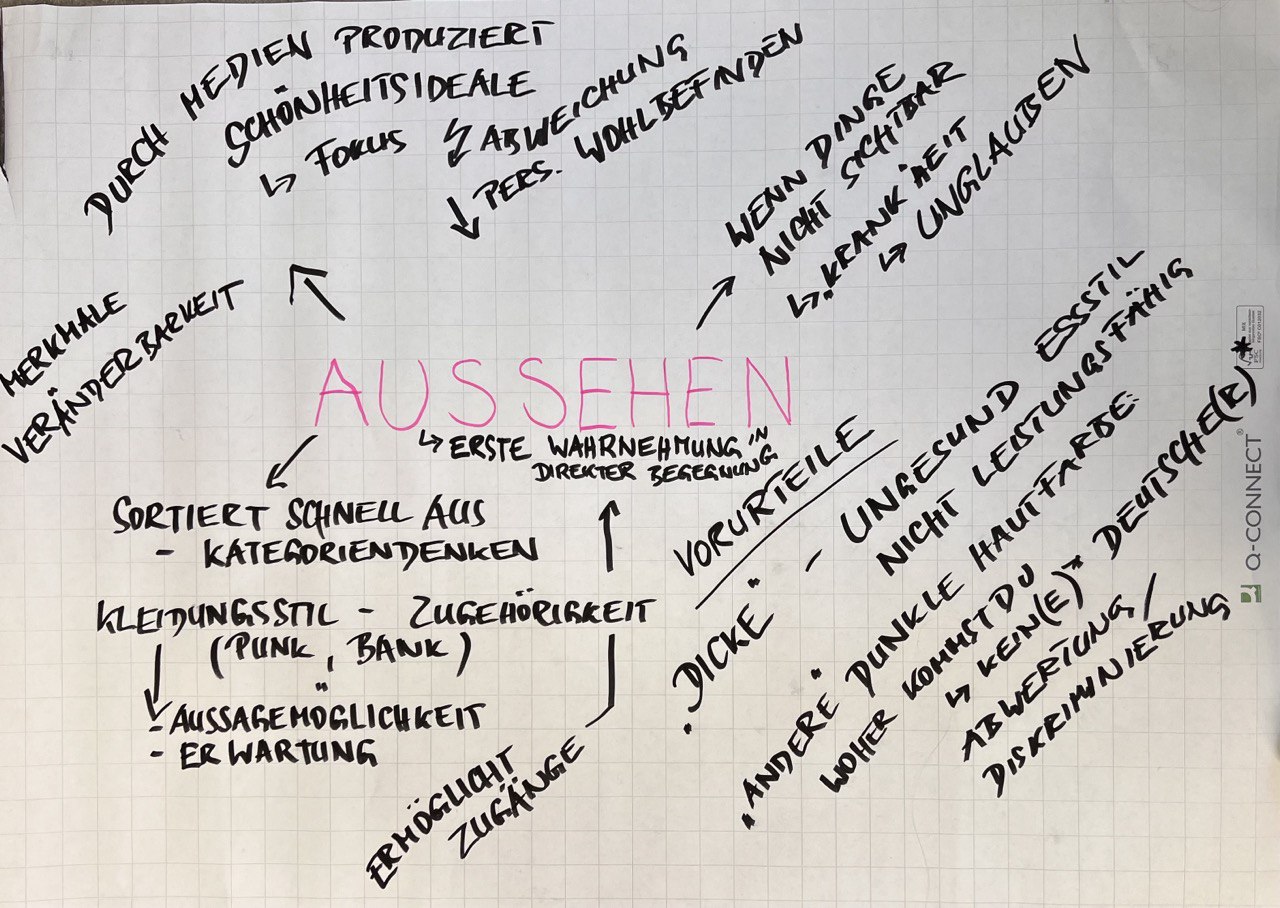 DURCH MEDIEN PRODUZIERT
SCHÖNHEITSIDEALE
↳ FOKUS ↯ ABWEICHUNG
↓ PERS. WOHLBEFINDEN
WENN DINGE
NICHT SICHTBAR
↳ KRANKHEIT
↳ UNGLAUBEN
MERKMALE
VERÄNDERBARKEIT
AUSSEHEN
↳ ERSTE WAHRNEHMUNG IN
DIREKTER BEGEGNUNG
SORTIERT SCHNELL AUS
- KATEGORIENDENKEN
KLEIDUNGSSTIL - ZUGEHÖRIGKEIT
(PUNK, BANK)
- AUSSAGEMÖGLICHKEIT
- ERWARTUNG
ERMÖGLICHT
ZUGÄNGE
VORURTEILE
„DICKE" - UNGESUND ESSSTIL
NICHT LEISTUNGSFÄHIG
„ANDERE" DUNKLE HAUTFARBE:
WOHER KOMMST DU
↳ KEIN(E)* DEUTSCHE(R)*
ABWERTUNG/
DISKRIMINIERUNG
Q-CONNECT®